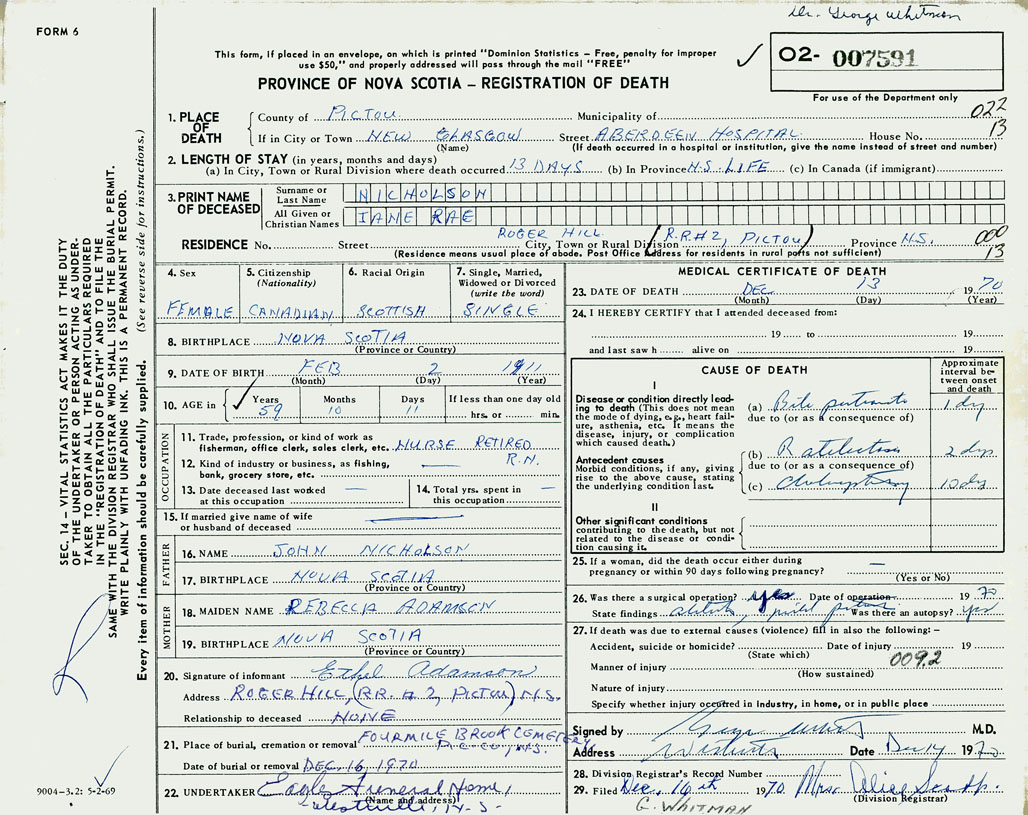 Dr. George Whitman
FORM 6
This form, if placed in an envelope, on which is printed "Dominion Statistics – Free, penalty for improper
use $50," and properly addressed will pass through the mail "FREE"
O2- 007591
PROVINCE OF NOVA SCOTIA – REGISTRATION OF DEATH
For use of the Department only
1. PLACE OF DEATH
County of PICTOU Municipality of 022
If in City or Town NEW GLASGOW Street ABERDEEN HOSPITAL House No. 13
(Name) (If death occurred in a hospital or institution, give the name instead of street and number)
2. LENGTH OF STAY (in years, months and days)
(a) In City, Town or Rural Division where death occurred 13 DAYS (b) In Province N.S. LIFE (c) In Canada (if immigrant)
3. PRINT NAME OF DECEASED
Surname or Last Name NICHOLSON
All Given or Christian Names JANE RAE
ROGER HILL
RESIDENCE No. Street City, Town or Rural Division (R.R.#2, PICTOU) Province N.S. 000
(Residence means usual place of abode. Post Office Address for residents in rural parts not sufficient) 13
4. Sex
FEMALE
5. Citizenship (Nationality)
CANADIAN
6. Racial Origin
SCOTTISH
7. Single, Married, Widowed or Divorced (write the word)
SINGLE
8. BIRTHPLACE NOVA SCOTIA
(Province or Country)
9. DATE OF BIRTH FEB 2 1911
(Month) (Day) (Year)
10. AGE in Years Months Days If less than one day old
59 10 11 hrs. or min.
OCCUPATION
11. Trade, profession, or kind of work as
fisherman, office clerk, sales clerk, etc. NURSE RETIRED
R.N.
12. Kind of industry or business, as fishing,
bank, grocery store, etc.
13. Date deceased last worked
at this occupation
14. Total yrs. spent in
this occupation
15. If married give name of wife
or husband of deceased
FATHER
16. NAME JOHN NICHOLSON
17. BIRTHPLACE NOVA SCOTIA
(Province or Country)
MOTHER
18. MAIDEN NAME REBECCA ADAMSON
19. BIRTHPLACE NOVA SCOTIA
(Province or Country)
20. Signature of informant Ethel Adamson
Address ROGER HILL, (RR #2, PICTOU) N.S.
Relationship to deceased NONE
21. Place of burial, cremation or removal FOURMILE BROOK CEMETERY
N.S.
Date of burial or removal DEC. 16, 1970
22. UNDERTAKER Eagles Funeral Home,
(Name and address)
Westville, N.S.
MEDICAL CERTIFICATE OF DEATH
23. DATE OF DEATH DEC 13 1970
(Month) (Day) (Year)
24. I HEREBY CERTIFY that I attended deceased from:
19 to 19
and last saw h alive on 19
CAUSE OF DEATH
Approximate interval between onset and death
I
Disease or condition directly leading to death (This does not mean the mode of dying, e.g., heart failure, asthenia, etc. It means the disease, injury, or complication which caused death.)
(a) Bile peritonitis 1 day
due to (or as a consequence of)
Antecedent causes
Morbid conditions, if any, giving rise to the above cause, stating the underlying condition last.
(b) 2 dys
due to (or as a consequence of)
(c) 10 dys
II
Other significant conditions
contributing to the death, but not related to the disease or condition causing it.
25. If a woman, did the death occur either during
pregnancy or within 90 days following pregnancy?
(Yes or No)
26. Was there a surgical operation? yes Date of operation 1970
State findings Was there an autopsy? yes
27. If death was due to external causes (violence) fill in also the following: –
Accident, suicide or homicide? Date of injury 19
(State which) 0092
Manner of injury
(How sustained)
Nature of injury
Specify whether injury occurred in industry, in home, or in public place
Signed by M.D.
Address Date Dec 14 1970
28. Division Registrar's Record Number
29. Filed Dec. 16th 1970 Mrs. Alice
(Division Registrar)
G. WHITMAN
SEC. 14 – VITAL STATISTICS ACT MAKES IT THE DUTY
OF THE UNDERTAKER OR PERSON ACTING AS UNDER-
TAKER TO OBTAIN ALL THE PARTICULARS REQUIRED
IN THE "REGISTRATION OF DEATH" AND TO FILE THE
SAME WITH THE DIVISION REGISTRAR WHO SHALL ISSUE THE BURIAL PERMIT.
WRITE PLAINLY WITH UNFADING INK. THIS IS A PERMANENT RECORD.
Every item of information should be carefully supplied. (See reverse side for instructions.)
9004–3.2: 5-2-69